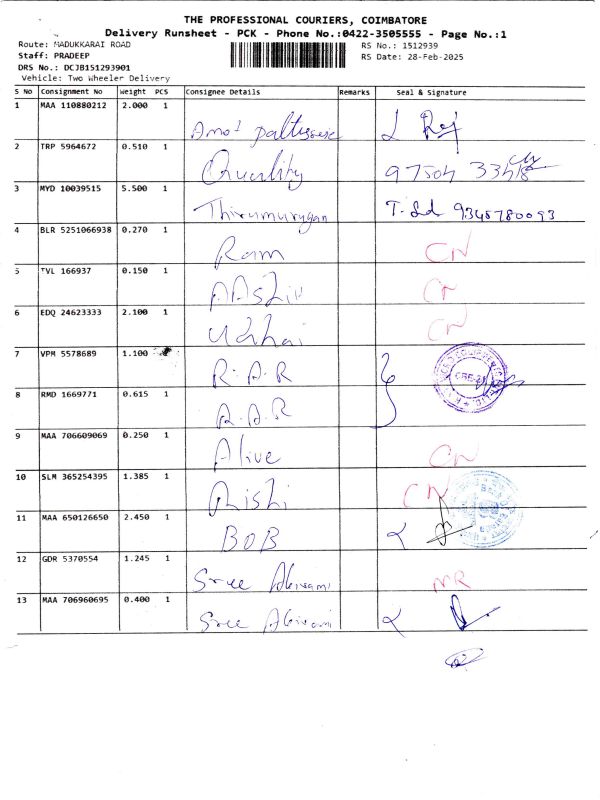 THE PROFESSIONAL COURIERS, COIMBATORE
Delivery Runsheet - PCK - Phone No.:0422-3505555 - Page No.:1
Route: MADUKKARAI ROAD RS No.: 1512939
Staff: PRADEEP RS Date: 28-Feb-2025
DRS No.: DCJB151293901
Vehicle: Two Wheeler Delivery
S No Consignment No Weight PCS Consignee Details Remarks Seal & Signature
1 MAA 110880212 2.000 1
2 TRP 5964672 0.510 1 Quality
3 MYD 10039515 5.500 1 Thirumurugan T. Sd 9345780093
4 BLR 5251066938 0.270 1 Ram CN
5 TVL 166937 0.150 1 CN
6 EDQ 24623333 2.100 1 CN
7 VPM 5578689 1.100 1 R.A.R
8 RMD 1669771 0.615 1 R.A.R
9 MAA 706609069 0.250 1 Alive CN
10 SLM 365254395 1.385 1 Rishi CN
11 MAA 650126650 2.450 1 BOB
12 GDR 5370554 1.245 1 Sree Abirami NR
13 MAA 706960695 0.400 1 Sree Abirami